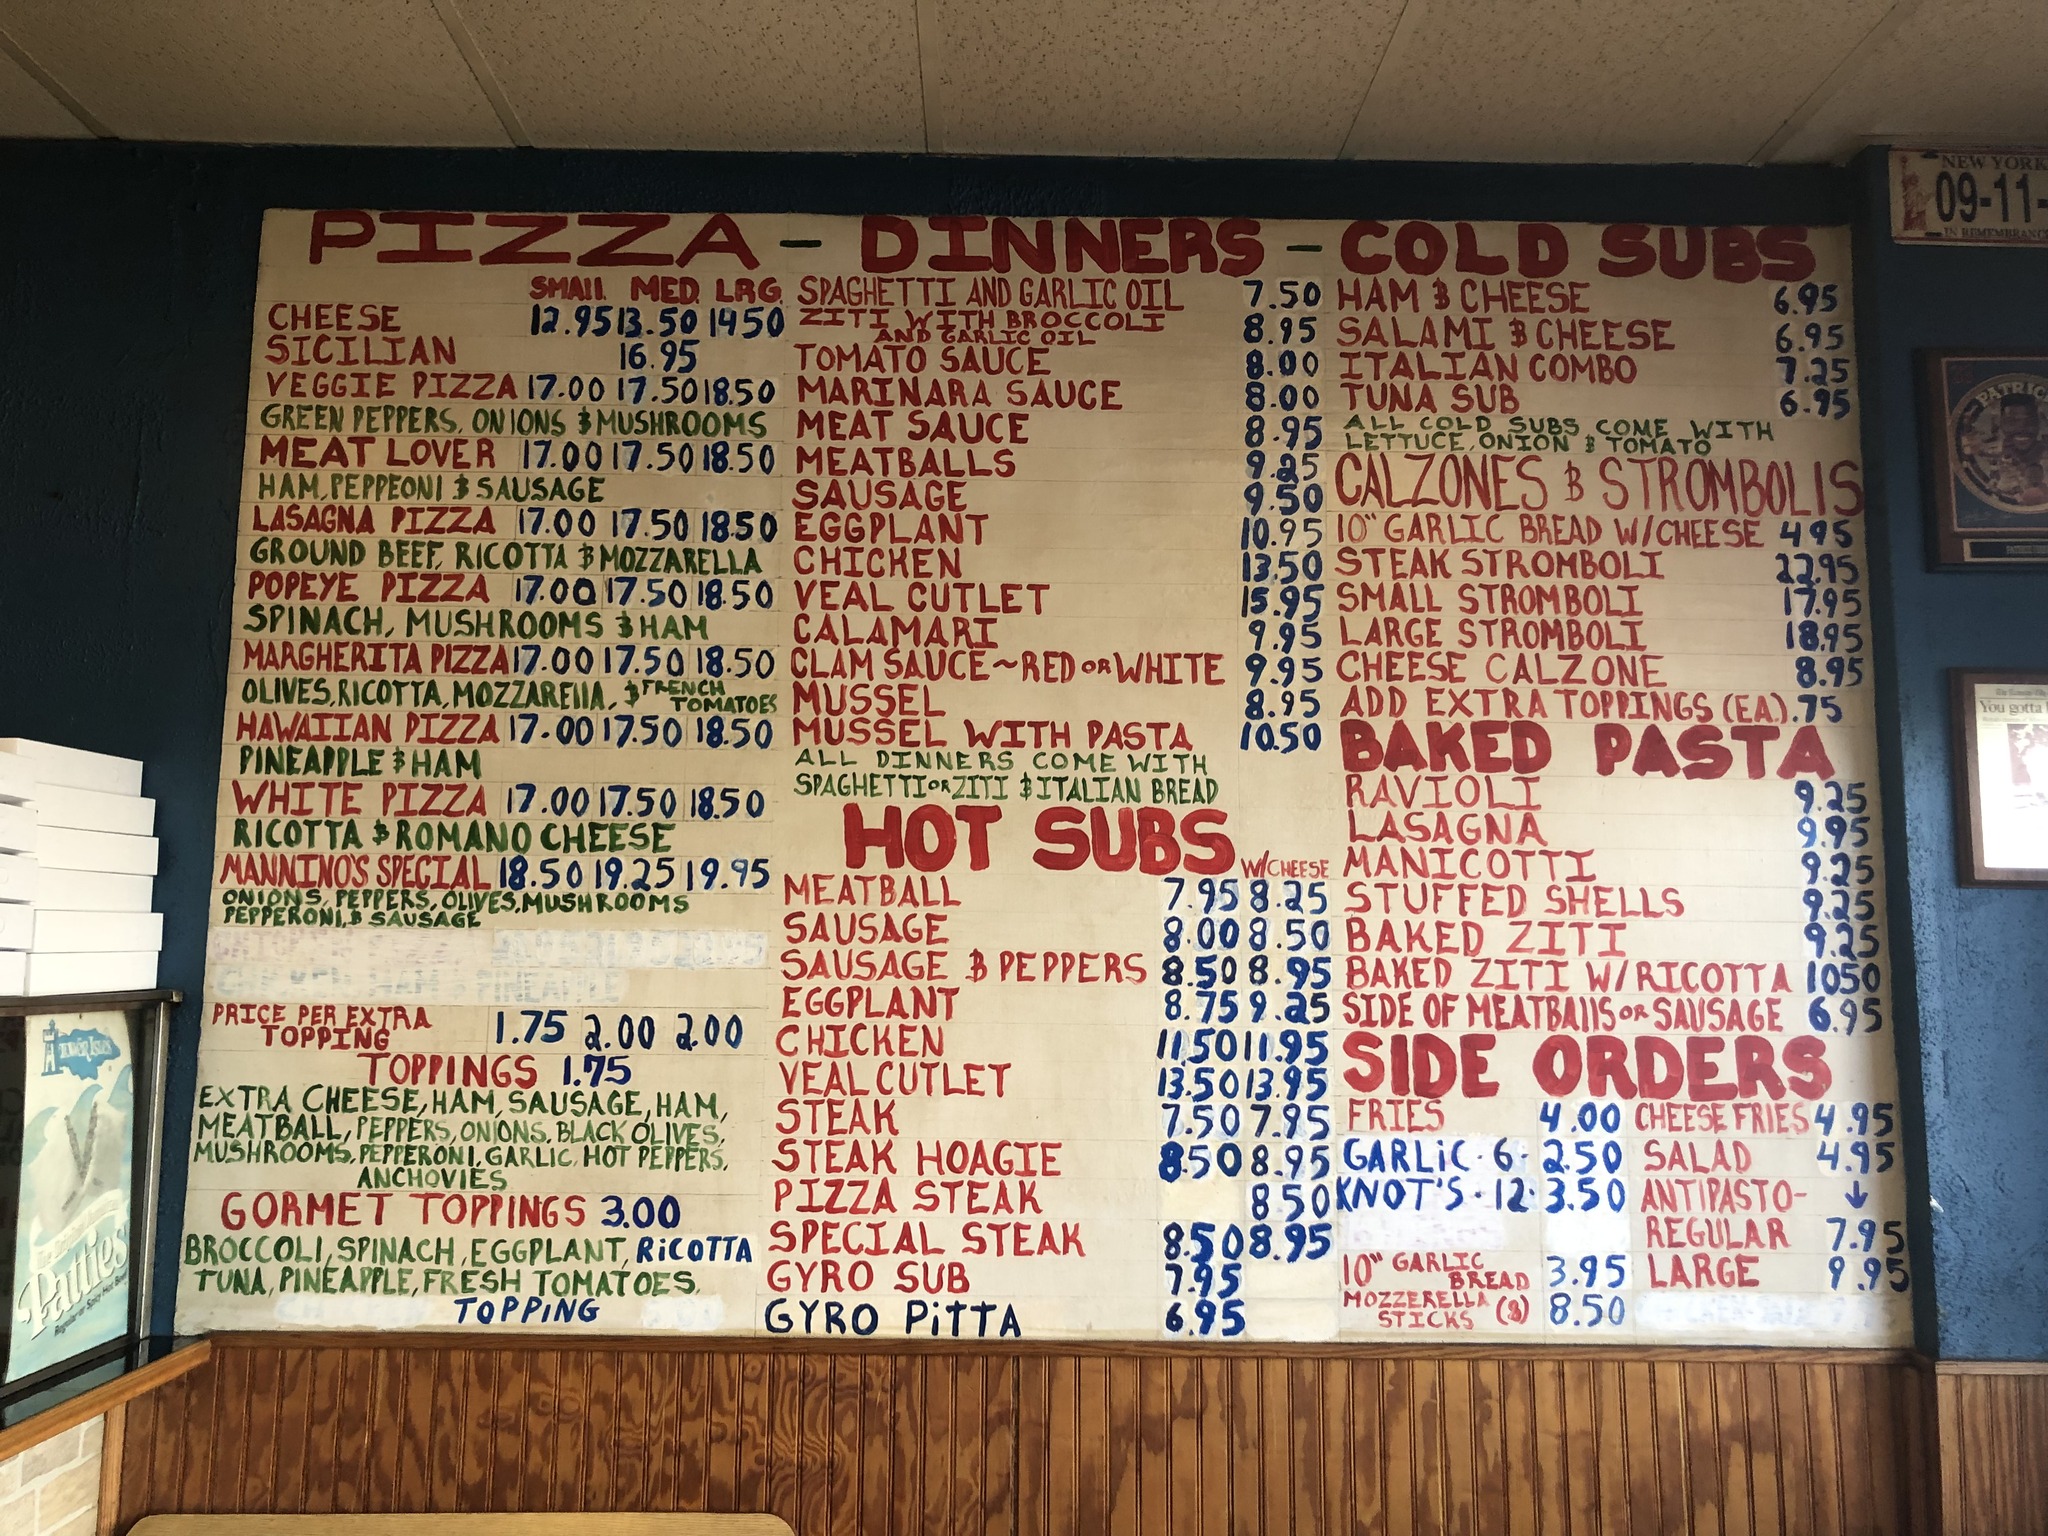 PIZZA - DINNERS - COLD SUBS
SMALL MED. LRG.
CHEESE 12.95 13.50 1450
SICILIAN 16.95
VEGGIE PIZZA 17.00 17.50 18.50
GREEN PEPPERS, ONIONS & MUSHROOMS
MEAT LOVER 17.00 17.50 18.50
HAM, PEPPEONI & SAUSAGE
LASAGNA PIZZA 17.00 17.50 18.50
GROUND BEEF, RICOTTA & MOZZARELLA
POPEYE PIZZA 17.00 17.50 18.50
SPINACH, MUSHROOMS & HAM
MARGHERITA PIZZA 17.00 17.50 18.50
OLIVES, RICOTTA, MOZZARElla, & FRENCH
TOMATOES
HAWAIIAN PIZZA 17.00 17.50 18.50
PINEAPPLE & HAM
WHITE PIZZA 17.00 17.50 18.50
RICOTTA & ROMANO CHEESE
MANNINO'S SPECIAL 18.50 19.25 19.95
ONIONS, PEPPERS, OLIVES, MUSHROOMS
PEPPERONI, & SAUSAGE
PRICE PER EXTRA
TOPPING 1.75 2.00 2.00
TOPPINGS 1.75
EXTRA CHEESE, HAM, SAUSAGE, HAM,
MEATBALL, PEPPERS, ONIONS, BLACK OLIVES,
MUSHROOMS, PEPPERONI, GARLIC, HOT PEPPERS,
ANCHOVIES
GORMET TOPPINGS 3.00
BROCCOLI, SPINACH, EGGPLANT, RiCOTTA
TUNA, PINEAPPLE, FRESH TOMATOES.
TOPPiNG
SPAGHETTI AND GARLIC OIL 7.50
ZITI WITH BROCCOLI
AND GARLIC OIL 8.95
TOMATO SAUCE 8.00
MARINARA SAUCE 8.00
MEAT SAUCE 8.95
MEATBALLS 9.25
SAUSAGE 9.50
EGGPLANT 10.95
CHICKEN 13.50
VEAL CUTLET 15.95
CALAMARI 9.95
CLAM SAUCE ~ RED OR WHITE 9.95
MUSSEL 8.95
MUSSEL WITH PASTA 10.50
ALL DINNERS COME WITH
SPAGHETTI OR ZITI & ITALIAN BREAD
HOT SUBS
W/CHEESE
MEATBALL 7.95 8.25
SAUSAGE 8.00 8.50
SAUSAGE & PEPPERS 8.50 8.95
EGGPLANT 8.75 9.25
CHICKEN 11.50 11.95
VEAL CUTLET 13.50 13.95
STEAK 7.50 7.95
STEAK HOAGIE 8.50 8.95
PIZZA STEAK 8.50
SPECIAL STEAK 8.50 8.95
GYRO SUB 7.95
GYRO PiTTA 6.95
HAM & CHEESE 6.95
SALAMI & CHEESE 6.95
ITALIAN COMBO 7.25
TUNA SUB 6.95
ALL COLD SUBS COME WITH
LETTUCE, ONION & TOMATO
CALZONES & STROMBOLIS
10" GARLIC BREAD W/CHEESE 495
STEAK STROMBOLI 22.95
SMALL STROMBOLI 17.95
LARGE STROMBOLI 18.95
CHEESE CALZONE 8.95
ADD EXTRA TOPPINGS (EA.) .75
BAKED PASTA
RAVIOLI 9.25
LASAGNA 9.95
MANICOTTI 9.25
STUFFED SHELLS 9.25
BAKED ZITI 9.25
BAKED ZITI W/RICOTTA 1050
SIDE OF MEATBAllS OR SAUSAGE 6.95
SIDE ORDERS
FRIES 4.00
GARLiC · 6 · 2.50
KNOT'S · 12 · 3.50
10" GARLIC
BREAD 3.95
MOZZERELLA
STICKS (8) 8.50
CHEESE FRIES 4.95
SALAD 4.95
ANTIPASTO- ↓
REGULAR 7.95
LARGE 9.95
NEW YORK
09-11-
You gotta
TOWER ISLES
Patties